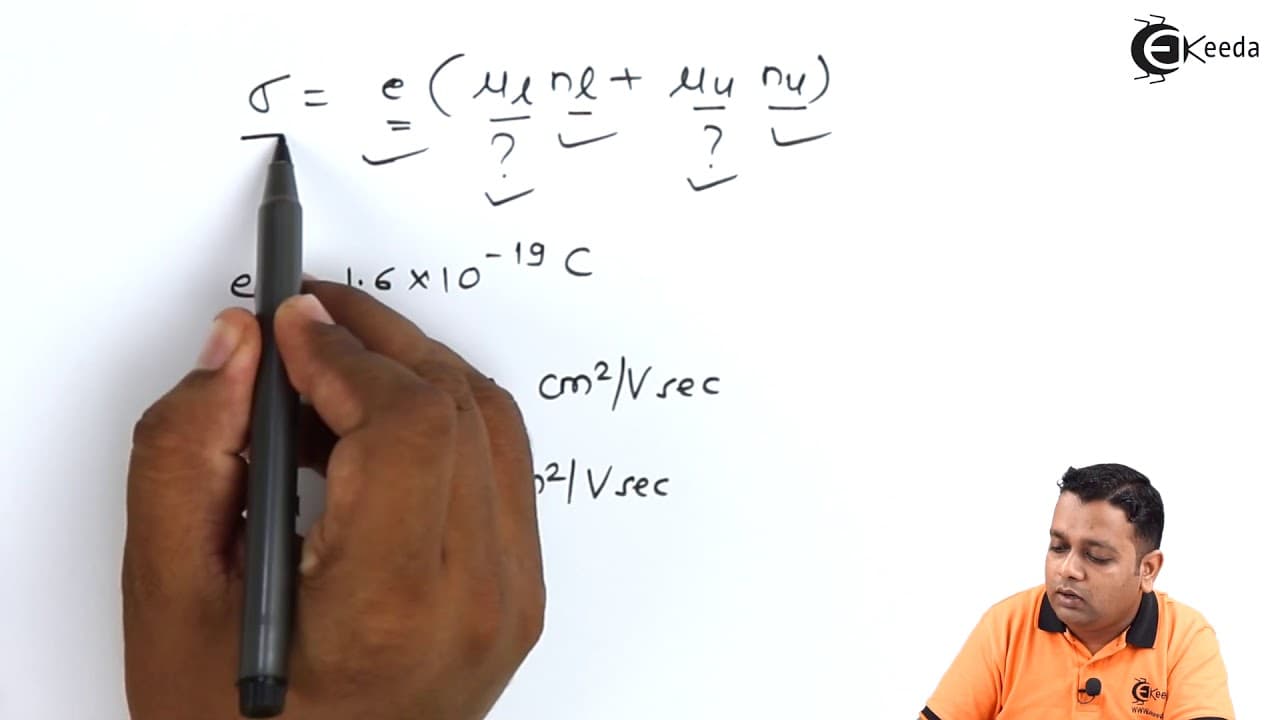 EKeeda
σ = e (μl nl + μu nu)
? ?
e 1.6 × 10⁻¹⁹ C
cm²/V sec
²/V sec
EKee